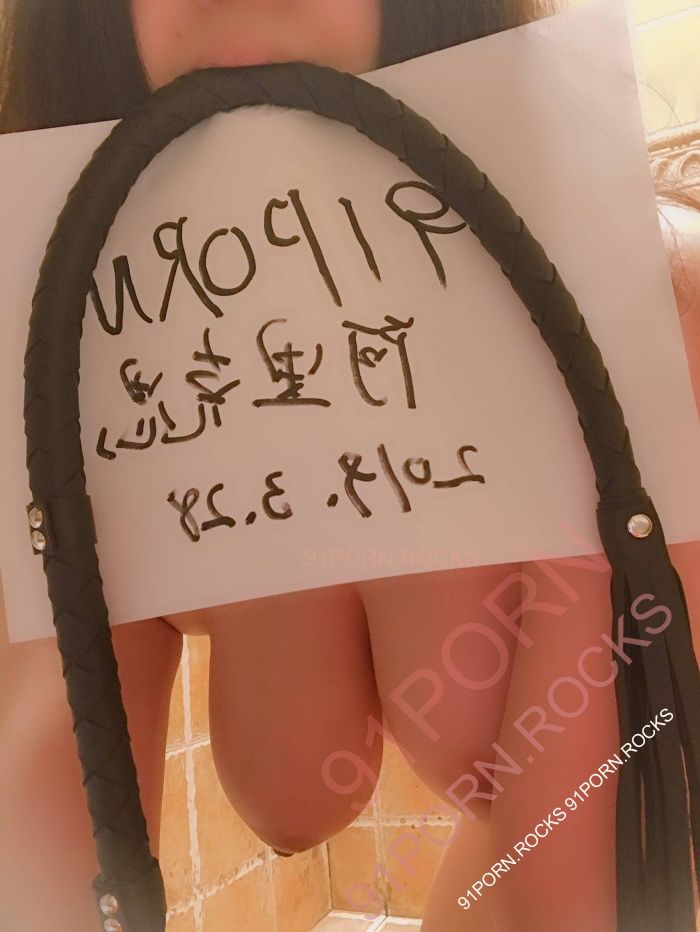 91PORN
2019.3.28
91PORN.ROCKS
91PORN
91PORN.ROCKS
91PORN.ROCKS 91PORN.ROCKS